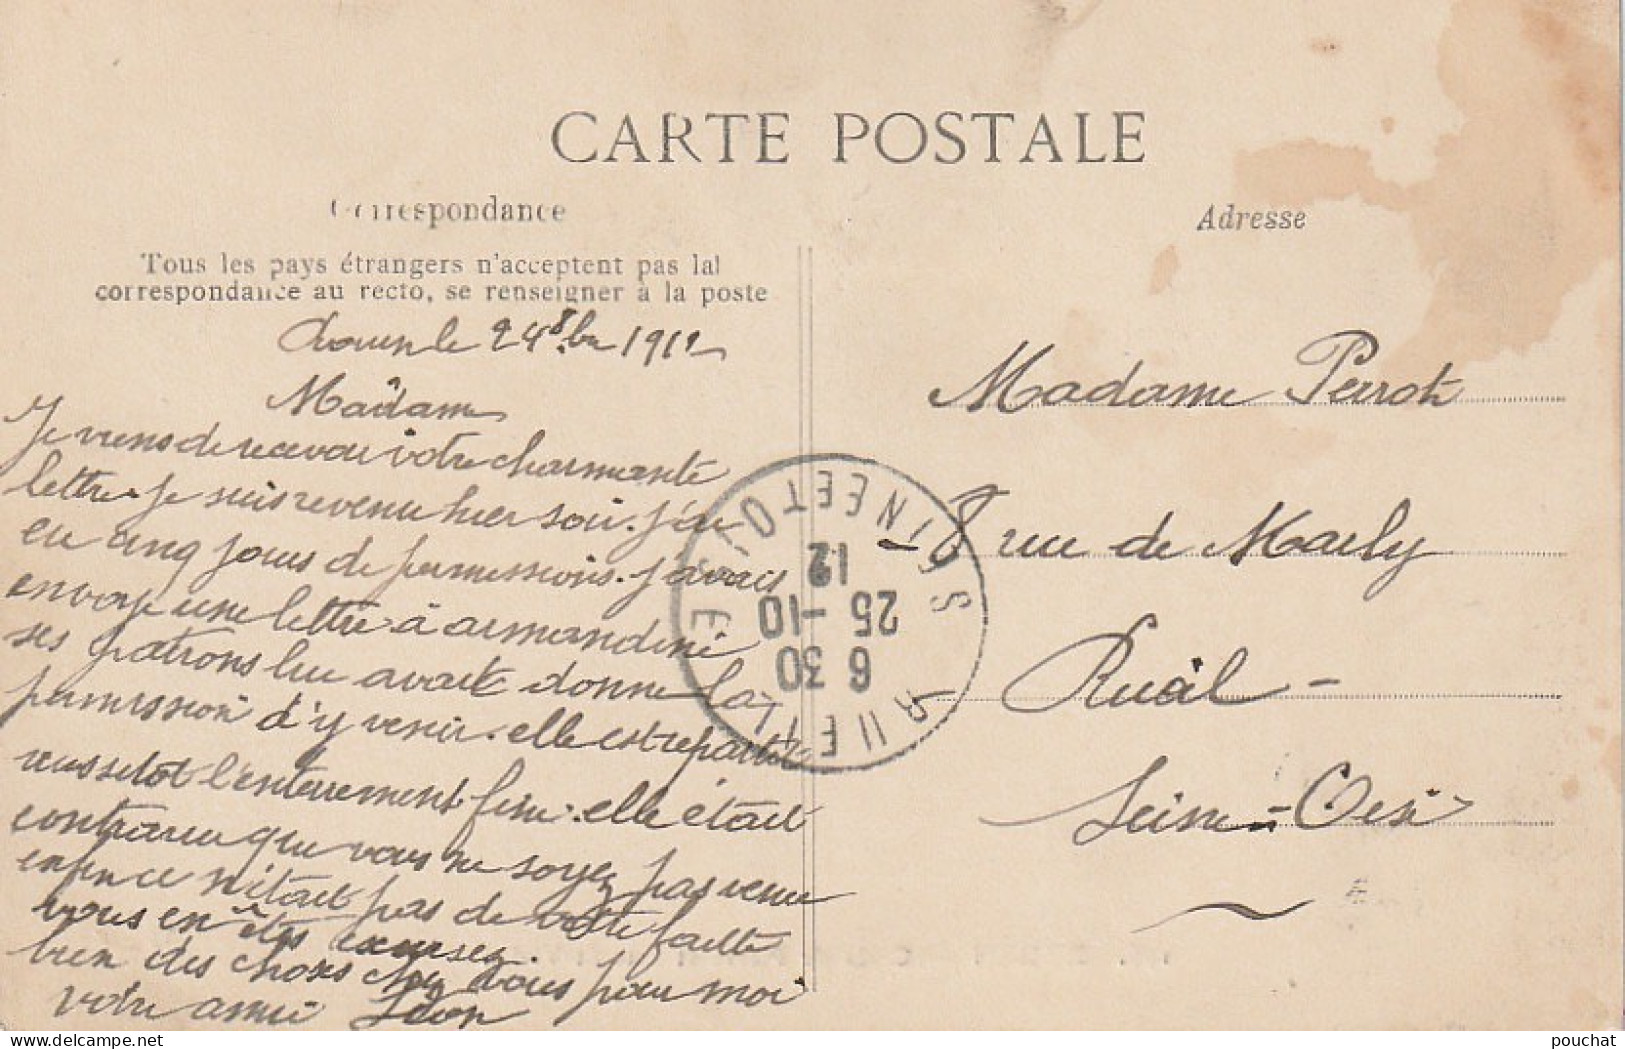 CARTE POSTALE
Correspondance
Adresse
Tous les pays étrangers n'acceptent pas la
correspondance au recto, se renseigner à la poste
Rouen le 24 8bre 1912
Madame
Je viens de recevoir votre charmante
lettre. je suis revenu hier soir. j'ai
eu cinq jours de permissions. j'avais
envoye une lettre à armandine
ses patrons lui avait donne la
permission d'y venir. elle est repartit
aussitot l'enterrement fini. elle était
contrarieu que vous ne soyez pas venue
enfin ce n'était pas de votre faute
vous en êtes excusez.
bien des choses chez vous pour moi
votre ami Léon
Madame Perrot
18 rue de Marly
Rueil -
Seine - Oise
SEINE ET OISE
6 30
25 -10
12
pouchat